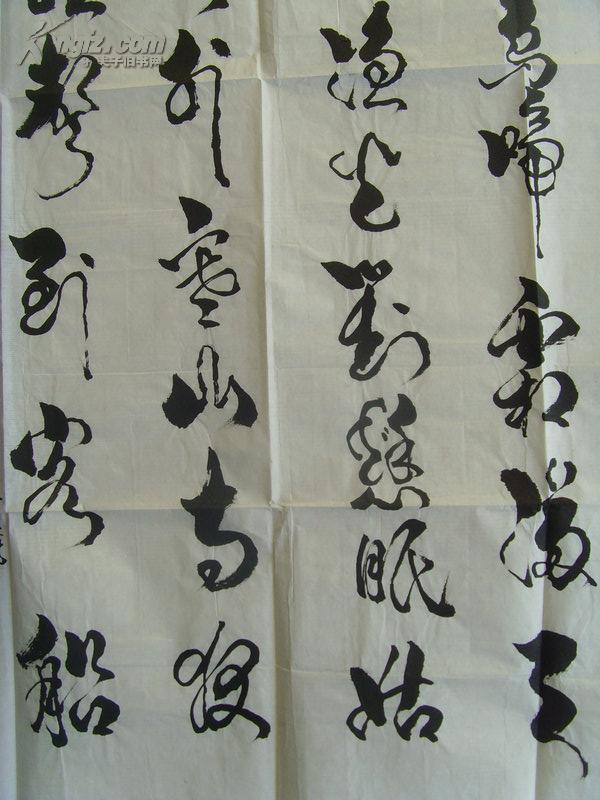 烏啼霜滿天
漁火對愁眠姑
外寒山寺夜
聲到客船
Kongfz.com
孔夫子旧书网